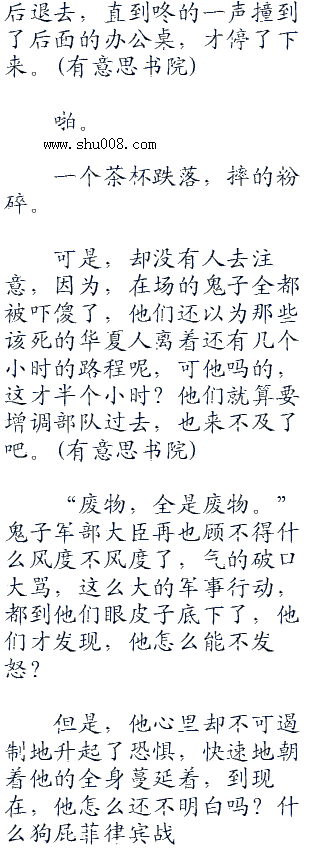 后退去，直到咚的一声撞到
了后面的办公桌，才停了下
来。(有意思书院)
啪。
www.shu008.com
一个茶杯跌落，摔的粉
碎。
可是，却没有人去注
意，因为，在场的鬼子全都
被吓傻了，他们还以为那些
该死的华夏人离着还有几个
小时的路程呢，可他吗的，
这才半个小时？他们就算要
增调部队过去，也来不及了
吧。(有意思书院)
“废物，全是废物。”
鬼子军部大臣再也顾不得什
么风度不风度了，气的破口
大骂，这么大的军事行动，
都到他们眼皮子底下了，他
们才发现，他怎么能不发
怒？
但是，他心里却不可遏
制地升起了恐惧，快速地朝
着他的全身蔓延着，到现
在，他怎么还不明白吗？什
么狗屁菲律宾战